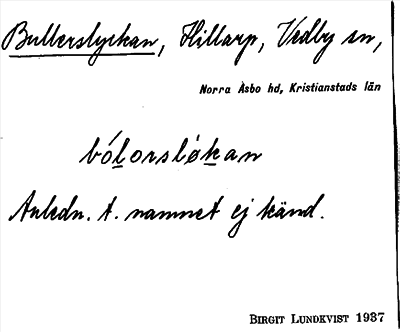 Bullerslyckan, Hillarp, Vedby sn,
Norra Åsbo hd, Kristianstads län
bólorsløkan
Anledn. t. namnet ej känd.
BIRGIT LUNDKVIST 1937